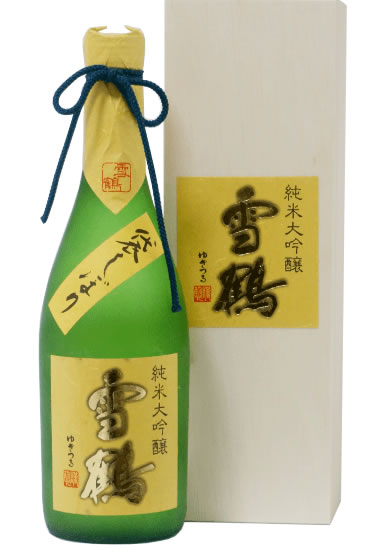 雪
鶴
袋しぼり
純米大吟醸
雪鶴
ゆきつる
純米大吟醸
雪鶴
ゆきつる